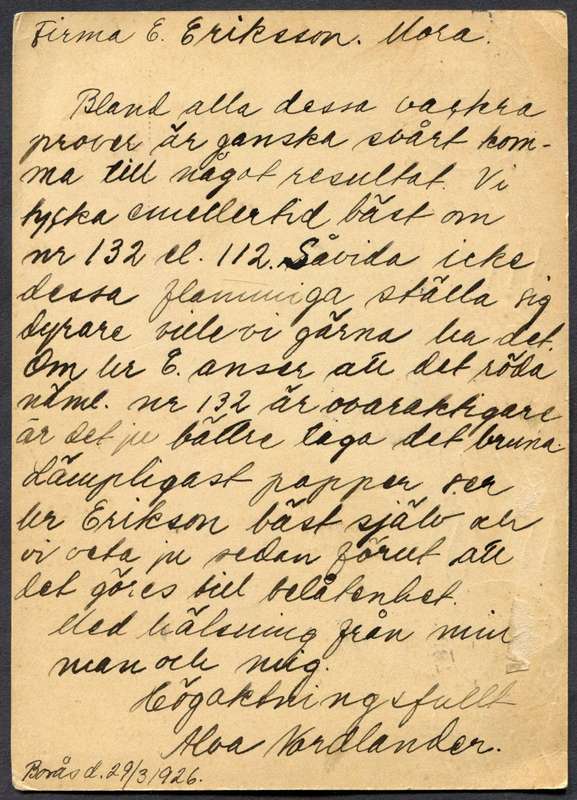 Firma E. Eriksson. Mora.
Bland alla dessa vackra
prover är ganska svårt kom-
ma till något resultat. Vi
tycka emellertid bäst om
nr 132 el. 112. Såvida icke
dessa flammiga ställa sig
dyrare ville vi gärna ha det.
Om hr E. anser att det röda
näml. nr 132 är ovaraktigare
är det ju bättre taga det bruna.
Lämpligast papper ser
hr Erikson bäst själv och
vi veta ju sedan förut att
det göres till belåtenhet.
Med hälsning från min
man och mig.
Högaktningsfullt
Alva Nordlander.
Borås d. 29/3 1926.